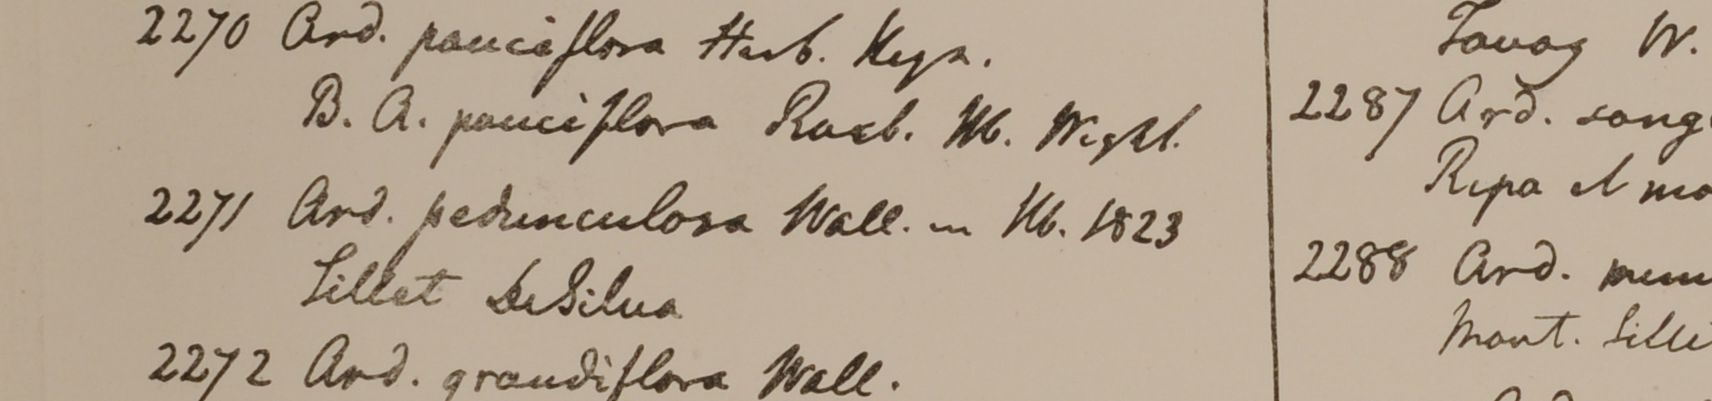 2270 Ard. pauciflora Herb. Heyn.
B. A. pauciflora Roxb. Hb. Wight.
2271 Ard. pedunculosa Wall. in Hb. 1823
Sillet DeSilva
2272 Ard. grandiflora Wall.
Tavoy W.
2287 Ard.
Ripa et
2288 Ard.
Mont.